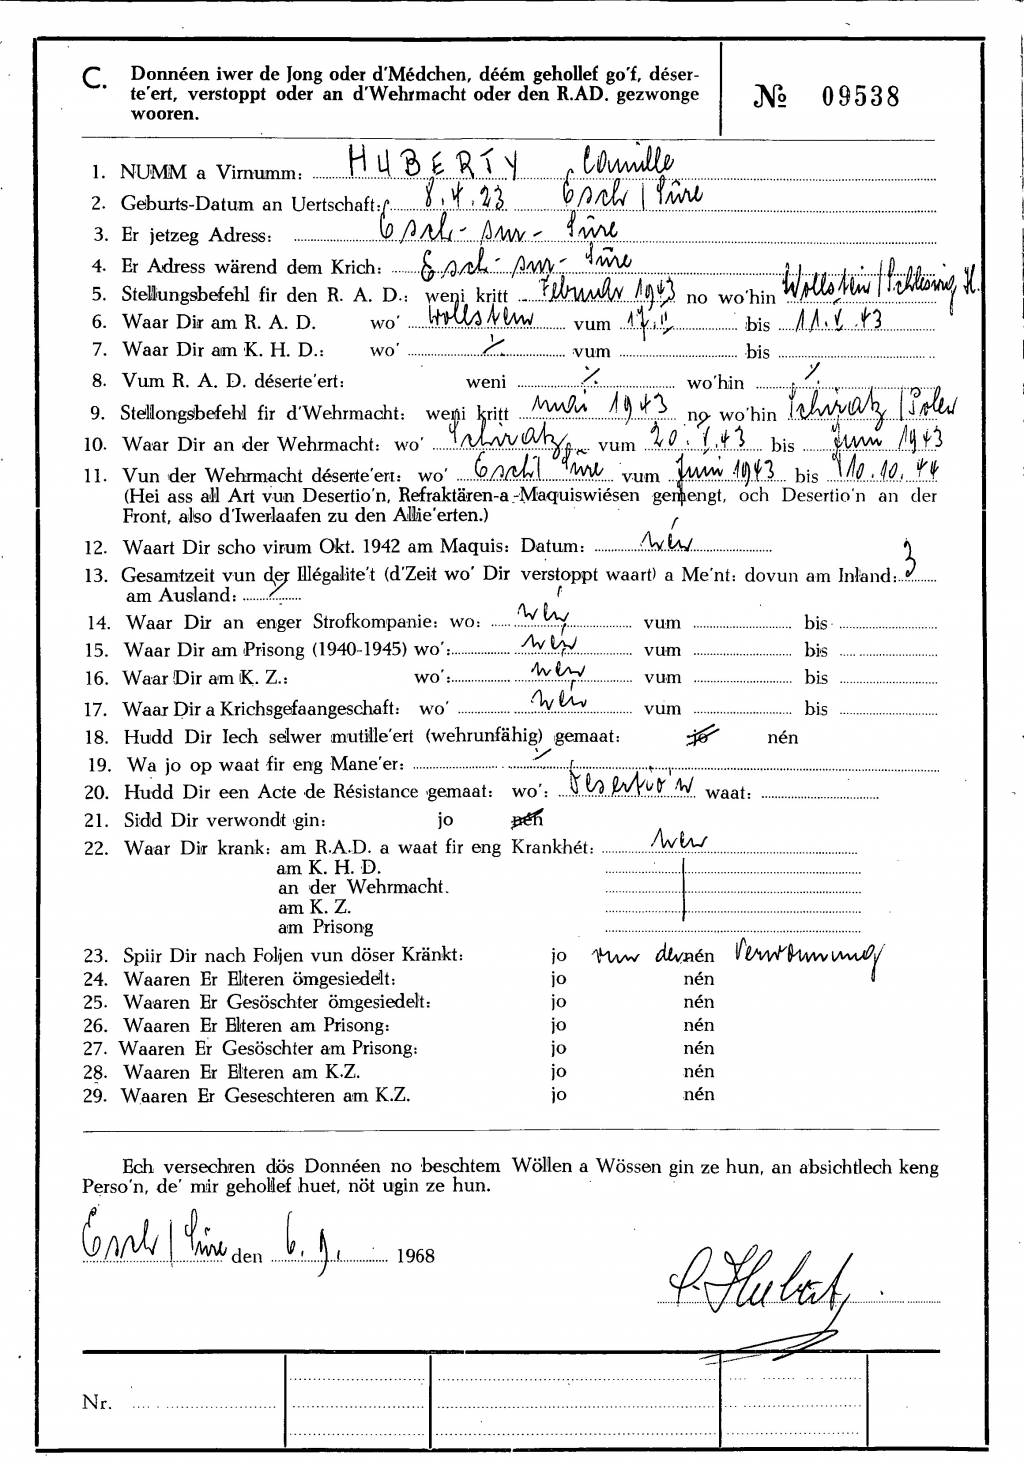 C. Donnéen iwer de Jong oder d'Médchen, déém gehollef go'f, déser-
te'ert, verstoppt oder an d'Wehrmacht oder den R.AD. gezwonge
wooren.
№ 09538
1. NUMM a Virnumm: HUBERTY Camille
2. Geburts-Datum an Uertschaft: 8.4.23 Esch/Sûre
3. Er jetzeg Adress: Esch-sur-Sûre
4. Er Adress wärend dem Krich: Esch-sur-Sûre
5. Stellungsbefehl fir den R. A. D.: weni kritt Februar 1943 no wo'hin Wollstein/Schleswig H.
6. Waar Dir am R. A. D. wo' Wollstein vum 17.II bis 11.V.43
7. Waar Dir am K. H. D.: wo' ./. vum bis
8. Vum R. A. D. déserte'ert: weni ./. wo'hin ./.
9. Stellongsbefehl fir d'Wehrmacht: weni kritt Mai 1943 no wo'hin Schiratz/Polen
10. Waar Dir an der Wehrmacht: wo' Schiratz vum 20.V.43 bis Juni 1943
11. Vun der Wehrmacht déserte'ert: wo' Esch/Sûre vum Juni 1943 bis 10.10.44
(Hei ass all Art vun Desertio'n, Refraktären-a -Maquiswiésen gemengt, och Desertio'n an der
Front, also d'Iwerlaafen zu den Allie'erten.)
12. Waart Dir scho virum Okt. 1942 am Maquis: Datum: nén
13. Gesamtzeit vun der Illégalite't (d'Zeit wo' Dir verstoppt waart) a Me'nt: dovun am Inland: 3
am Ausland: /
14. Waar Dir an enger Strofkompanie: wo: nén vum bis
15. Waar Dir am Prisong (1940-1945) wo': nén vum bis
16. Waar Dir am K. Z.: wo': nén vum bis
17. Waar Dir a Krichsgefaangeschaft: wo' nén vum bis
18. Hudd Dir Iech selwer mutille'ert (wehrunfähig) gemaat: jo nén
19. Wa jo op waat fir eng Mane'er: ./.
20. Hudd Dir een Acte de Résistance gemaat: wo': Desertio'n waat:
21. Sidd Dir verwondt gin: jo nén
22. Waar Dir krank: am R.A.D. a waat fir eng Krankhét: nén
am K. H. D.
an der Wehrmacht.
am K. Z.
am Prisong
23. Spiir Dir nach Foljen vun döser Kränkt: jo vun der nén Verwonnung
24. Waaren Er Elteren ömgesiedelt: jo nén
25. Waaren Er Gesöschter ömgesiedelt: jo nén
26. Waaren Er Elteren am Prisong: jo nén
27. Waaren Er Gesöschter am Prisong: jo nén
28. Waaren Er Elteren am K.Z. jo nén
29. Waaren Er Geseschteren am K.Z. jo nén
Ech versechren dös Donnéen no beschtem Wöllen a Wössen gin ze hun, an absichtlech keng
Perso'n, de' mir gehollef huet, nöt ugin ze hun.
Esch/Sûre den 6.9. 1968
C. Huberty
Nr.